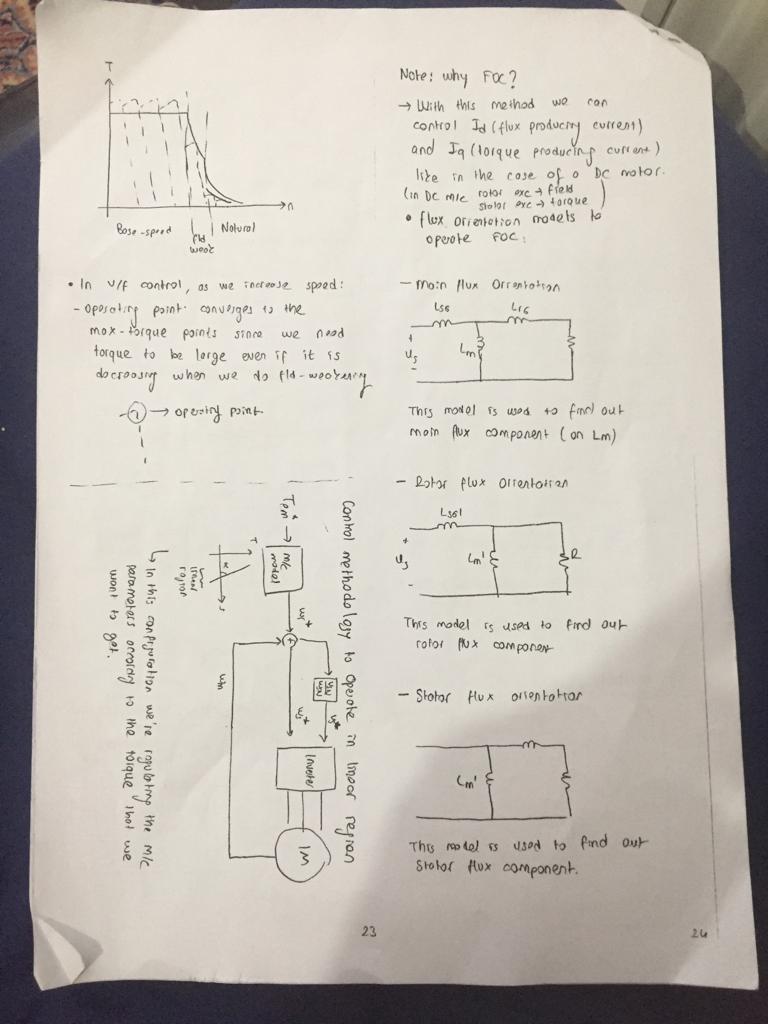 T
n
Base-speed
Natural
• In V/f control, as we increase speed:
- Operating point converges to the
max-torque points since we need
torque to be large even if it is
decreasing when we do fld-weakening
→ operating point
Control methodology to operate in linear region
Tem* →
M/C
model
wr*
+
ws*
V*
Inverter
IM
wm
T
s
linear
region
↳ In this configuration we're regulating the m/c
parameters according to the torque that we
want to get.
23
Note: why FOC?
→ With this method we can
control Id (flux producing current)
and Iq (torque producing current)
like in the case of a DC motor.
(in DC m/c rotor exc → field
stator exc → torque)
• flux orientation models to
operate FOC:
- Main flux Orientation
Lsσ
Lrσ
+
Us
-
Lm
This model is used to find out
main flux component (on Lm)
- Rotor flux orientation
Lsσ'
+
Us
-
Lm'
R
This model is used to find out
rotor flux component
- Stator flux orientation
Lm'
This model is used to find out
Stator flux component.
24